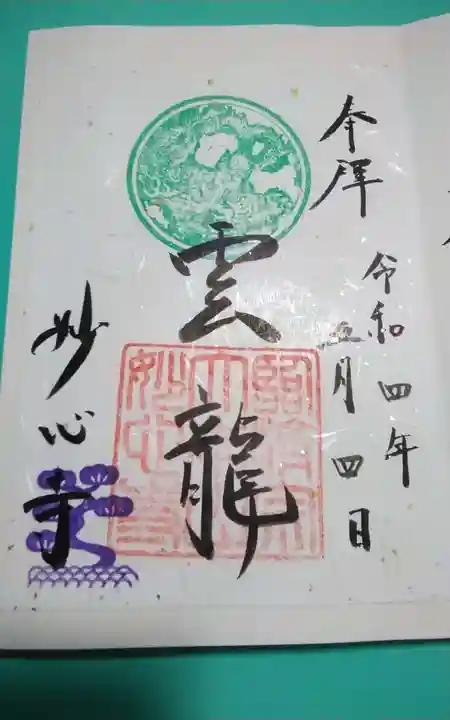 奉拝
令和四年
五月四日
雲龍
妙心寺